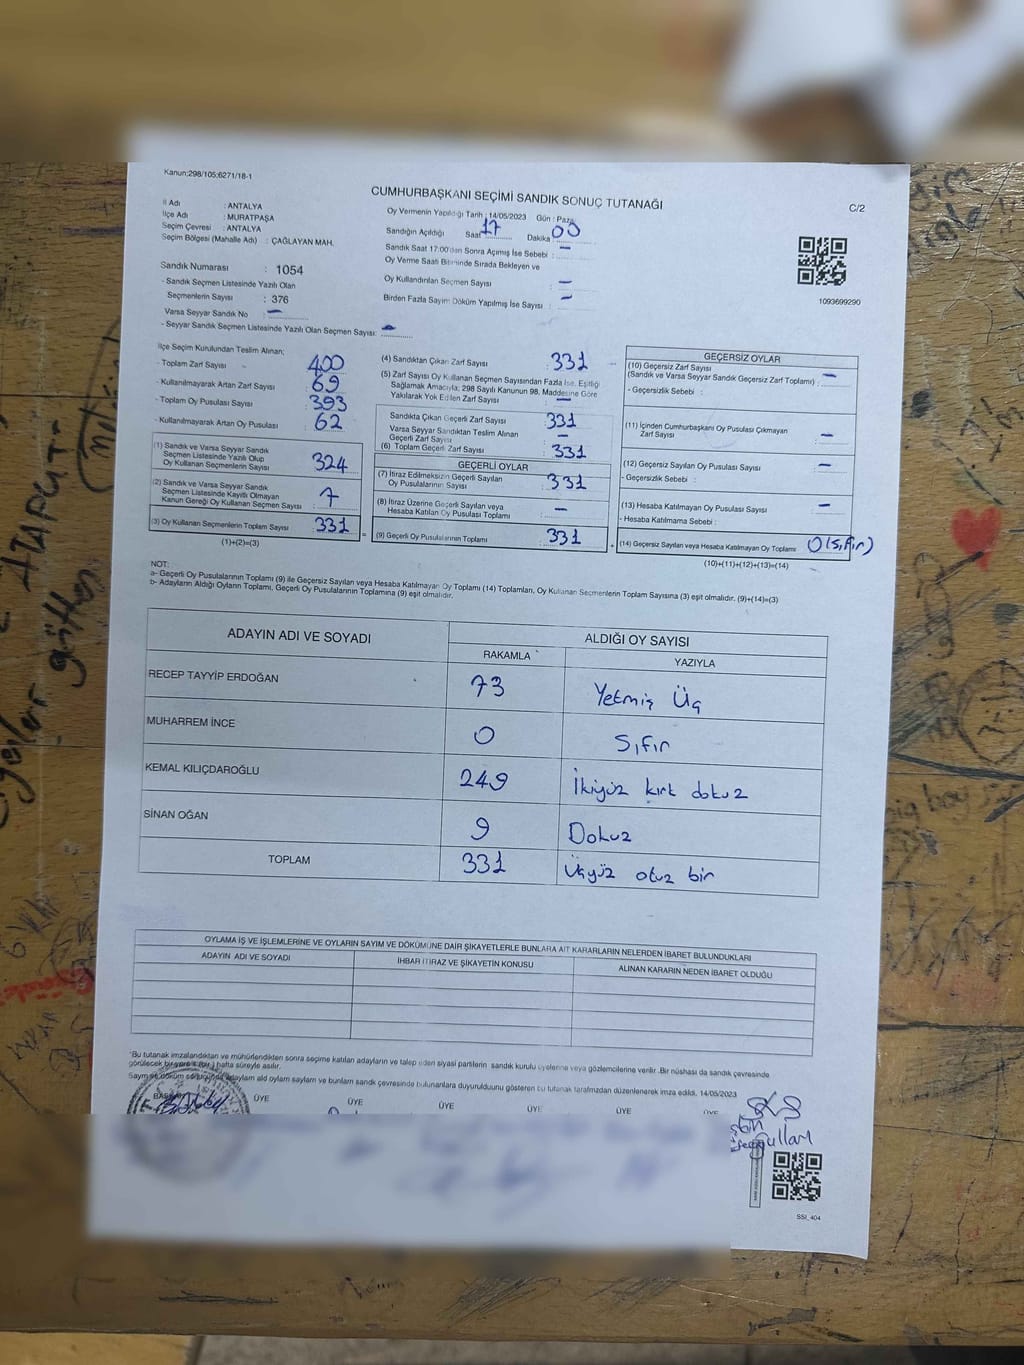 Kanun;298/105;6271/18-1
CUMHURBAŞKANI SEÇİMİ SANDIK SONUÇ TUTANAĞI
C/2
İl Adı : ANTALYA
İlçe Adı : MURATPAŞA
Seçim Çevresi : ANTALYA
Seçim Bölgesi (Mahalle Adı) : ÇAĞLAYAN MAH.
Oy Vermenin Yapıldığı Tarih : 14/05/2023 Gün : Pazar
Sandığın Açıldığı Saat 17 Dakika 00
Sandık Saat 17:00'dan Sonra Açımış İse Sebebi : –
Oy Verme Saati Bitiminde Sırada Bekleyen ve
Oy Kullandırılan Seçmen Sayısı : –
Birden Fazla Sayım Döküm Yapılmış İse Sayısı : –
1093699290
Sandık Numarası : 1054
- Sandık Seçmen Listesinde Yazılı Olan
Seçmenlerin Sayısı : 376
Varsa Seyyar Sandık No –
- Seyyar Sandık Seçmen Listesinde Yazılı Olan Seçmen Sayısı: –
İlçe Seçim Kurulundan Teslim Alınan;
- Toplam Zarf Sayısı 400
- Kullanılmayarak Artan Zarf Sayısı 69
- Toplam Oy Pusulası Sayısı 393
- Kullanılmayarak Artan Oy Pusulası 62
(1) Sandık ve Varsa Seyyar Sandık
Seçmen Listesinde Yazılı Olup
Oy Kullanan Seçmenlerin Sayısı 324
(2) Sandık ve Varsa Seyyar Sandık
Seçmen Listesinde Kayıtlı Olmayan
Kanun Gereği Oy Kullanan Seçmen Sayısı 7
(3) Oy Kullanan Seçmenlerin Toplam Sayısı 331
(1)+(2)=(3)
(4) Sandıktan Çıkan Zarf Sayısı : 331
(5) Zarf Sayısı Oy Kullanan Seçmen Sayısından Fazla İse, Eşitliği
Sağlamak Amacıyla; 298 Sayılı Kanunun 98. Maddesine Göre
Yakılarak Yok Edilen Zarf Sayısı : –
Sandıkta Çıkan Geçerli Zarf Sayısı : 331
Varsa Seyyar Sandıktan Teslim Alınan
Geçerli Zarf Sayısı : –
(6) Toplam Geçerli Zarf Sayısı : 331
GEÇERLİ OYLAR
(7) İtiraz Edilmeksizin Geçerli Sayılan
Oy Pusulalarının Sayısı : 331
(8) İtiraz Üzerine Geçerli Sayılan veya
Hesaba Katılan Oy Pusulası Toplamı : –
(9) Geçerli Oy Pusulalarının Toplamı : 331
GEÇERSİZ OYLAR
(10) Geçersiz Zarf Sayısı
(Sandık ve Varsa Seyyar Sandık Geçersiz Zarf Toplamı) : –
- Geçersizlik Sebebi :
(11) İçinden Cumhurbaşkanı Oy Pusulası Çıkmayan
Zarf Sayısı –
(12) Geçersiz Sayılan Oy Pusulası Sayısı –
- Geçersizlik Sebebi :
(13) Hesaba Katılmayan Oy Pusulası Sayısı –
- Hesaba Katılmama Sebebi :
(14) Geçersiz Sayılan veya Hesaba Katılmayan Oy Toplamı 0 (sıfır)
(10)+(11)+(12)+(13)=(14)
NOT:
a- Geçerli Oy Pusulalarının Toplamı (9) ile Geçersiz Sayılan veya Hesaba Katılmayan Oy Toplamı (14) Toplamları, Oy Kullanan Seçmenlerin Toplam Sayısına (3) eşit olmalıdır. (9)+(14)=(3)
b- Adayların Aldığı Oyların Toplamı, Geçerli Oy Pusulalarının Toplamına (9) eşit olmalıdır.
ADAYIN ADI VE SOYADI
ALDIĞI OY SAYISI
RAKAMLA YAZIYLA
RECEP TAYYİP ERDOĞAN 73 Yetmiş Üç
MUHARREM İNCE 0 Sıfır
KEMAL KILIÇDAROĞLU 249 İkiyüz kırk dokuz
SİNAN OĞAN 9 Dokuz
TOPLAM 331 Üçyüz otuz bir
OYLAMA İŞ VE İŞLEMLERİNE VE OYLARIN SAYIM VE DÖKÜMÜNE DAİR ŞİKAYETLERLE BUNLARA AİT KARARLARIN NELERDEN İBARET BULUNDUKLARI
ADAYIN ADI VE SOYADI İHBAR İTİRAZ VE ŞİKAYETİN KONUSU ALINAN KARARIN NEDEN İBARET OLDUĞU
"Bu tutanak imzalandıktan ve mühürlendikten sonra seçime katılan adayların ve talep eden siyasi partilerin sandık kurulu üyelerine veya gözlemcilerine verilir. Bir nüshası da sandık çevresinde
görülecek bir yere 1 (bir) hafta süreyle asılır.
14/05/2023
ÜYE ÜYE ÜYE ÜYE ÜYE ÜYE
SSİ_404